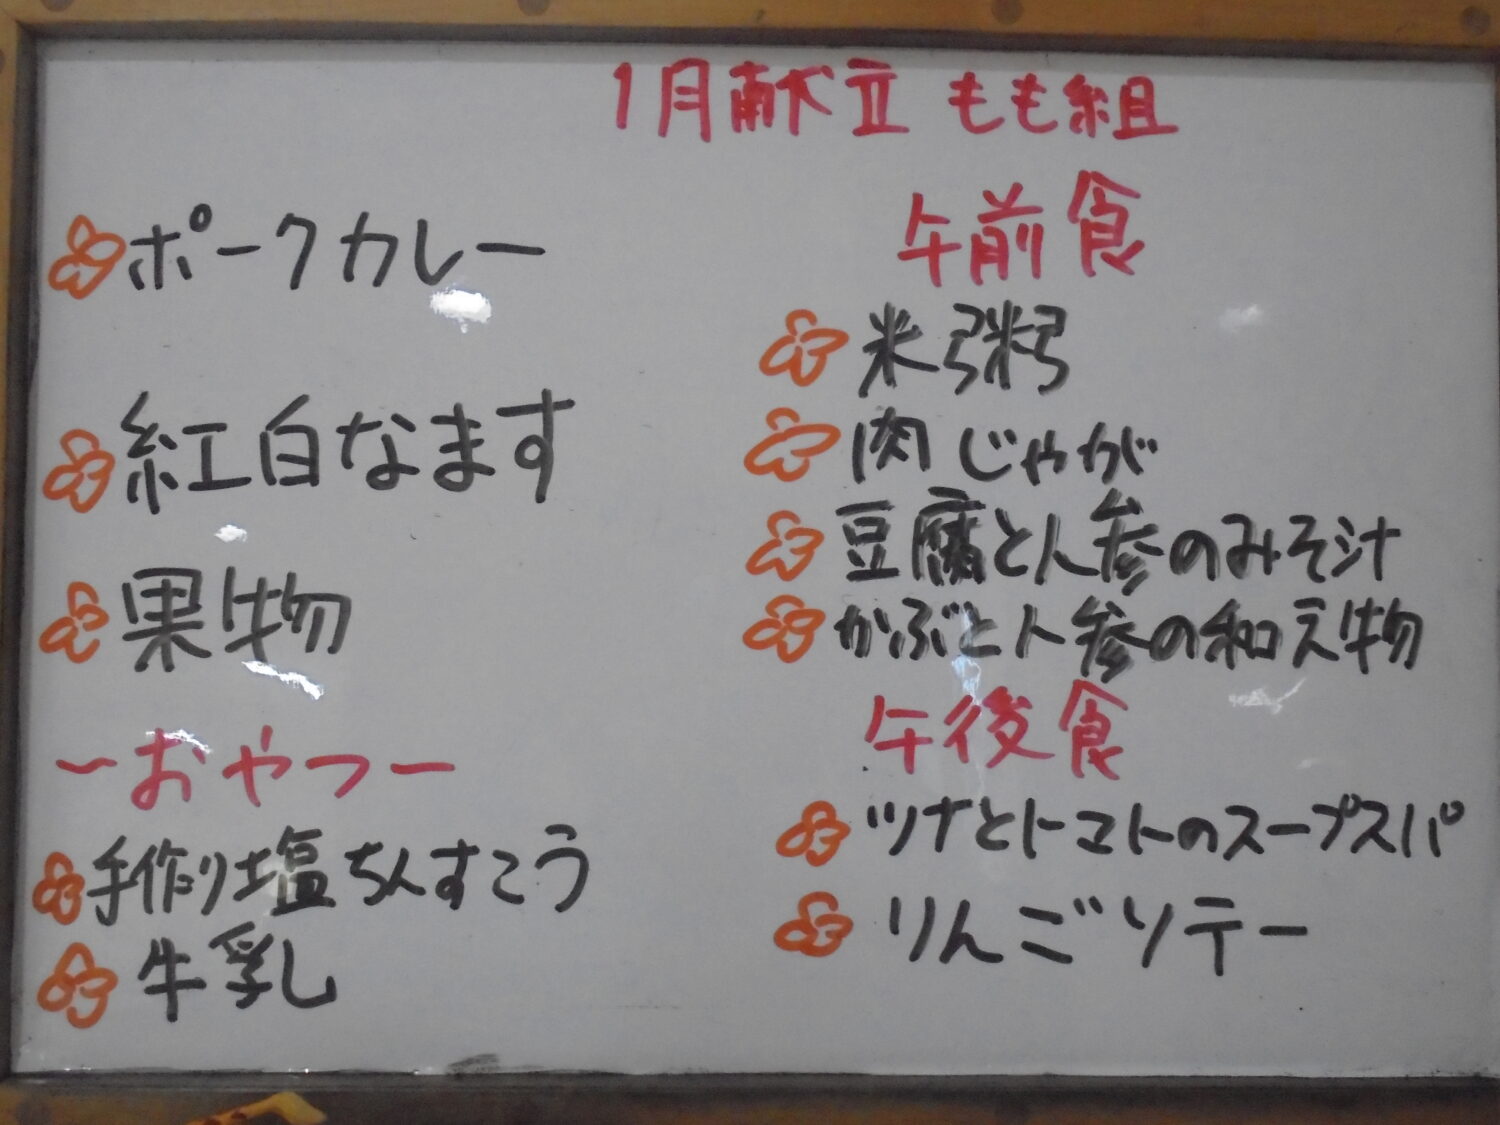 1月献立 もも組
ポークカレー
紅白なます
果物
ーおやつー
手作り塩ちんすこう
牛乳
午前食
米粥
肉じゃが
豆腐と人参のみそ汁
かぶと人参の和え物
午後食
ツナとトマトのスープスパ
りんごソテー